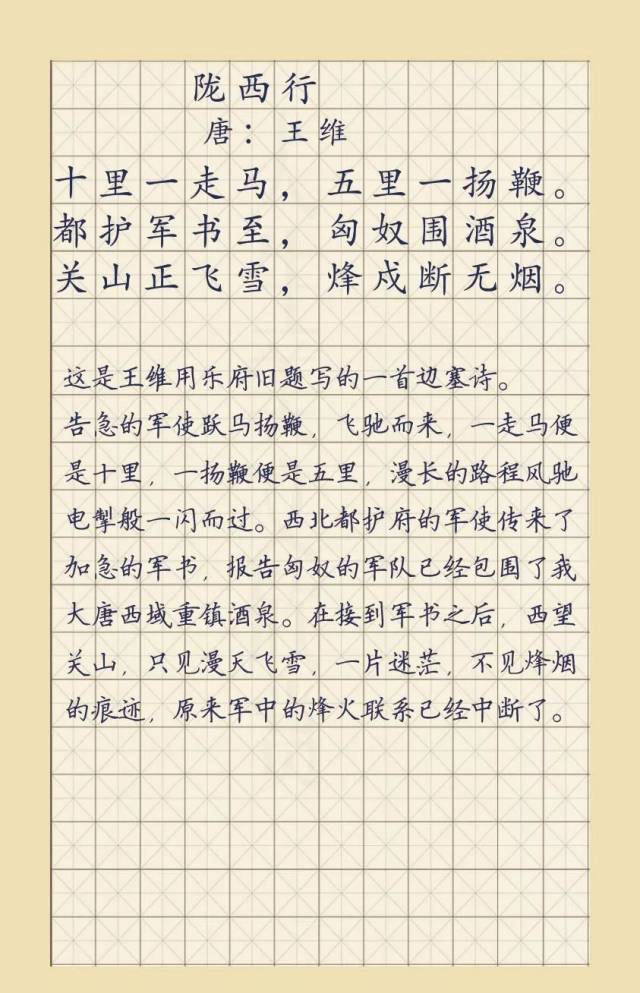 陇西行
唐：王维
十里一走马，五里一扬鞭。
都护军书至，匈奴围酒泉。
关山正飞雪，烽戍断无烟。
这是王维用乐府旧题写的一首边塞诗。
告急的军使跃马扬鞭，飞驰而来，一走马便
是十里，一扬鞭便是五里，漫长的路程风驰
电掣般一闪而过。西北都护府的军使传来了
加急的军书，报告匈奴的军队已经包围了我
大唐西域重镇酒泉。在接到军书之后，西望
关山，只见漫天飞雪，一片迷茫，不见烽烟
的痕迹，原来军中的烽火联系已经中断了。